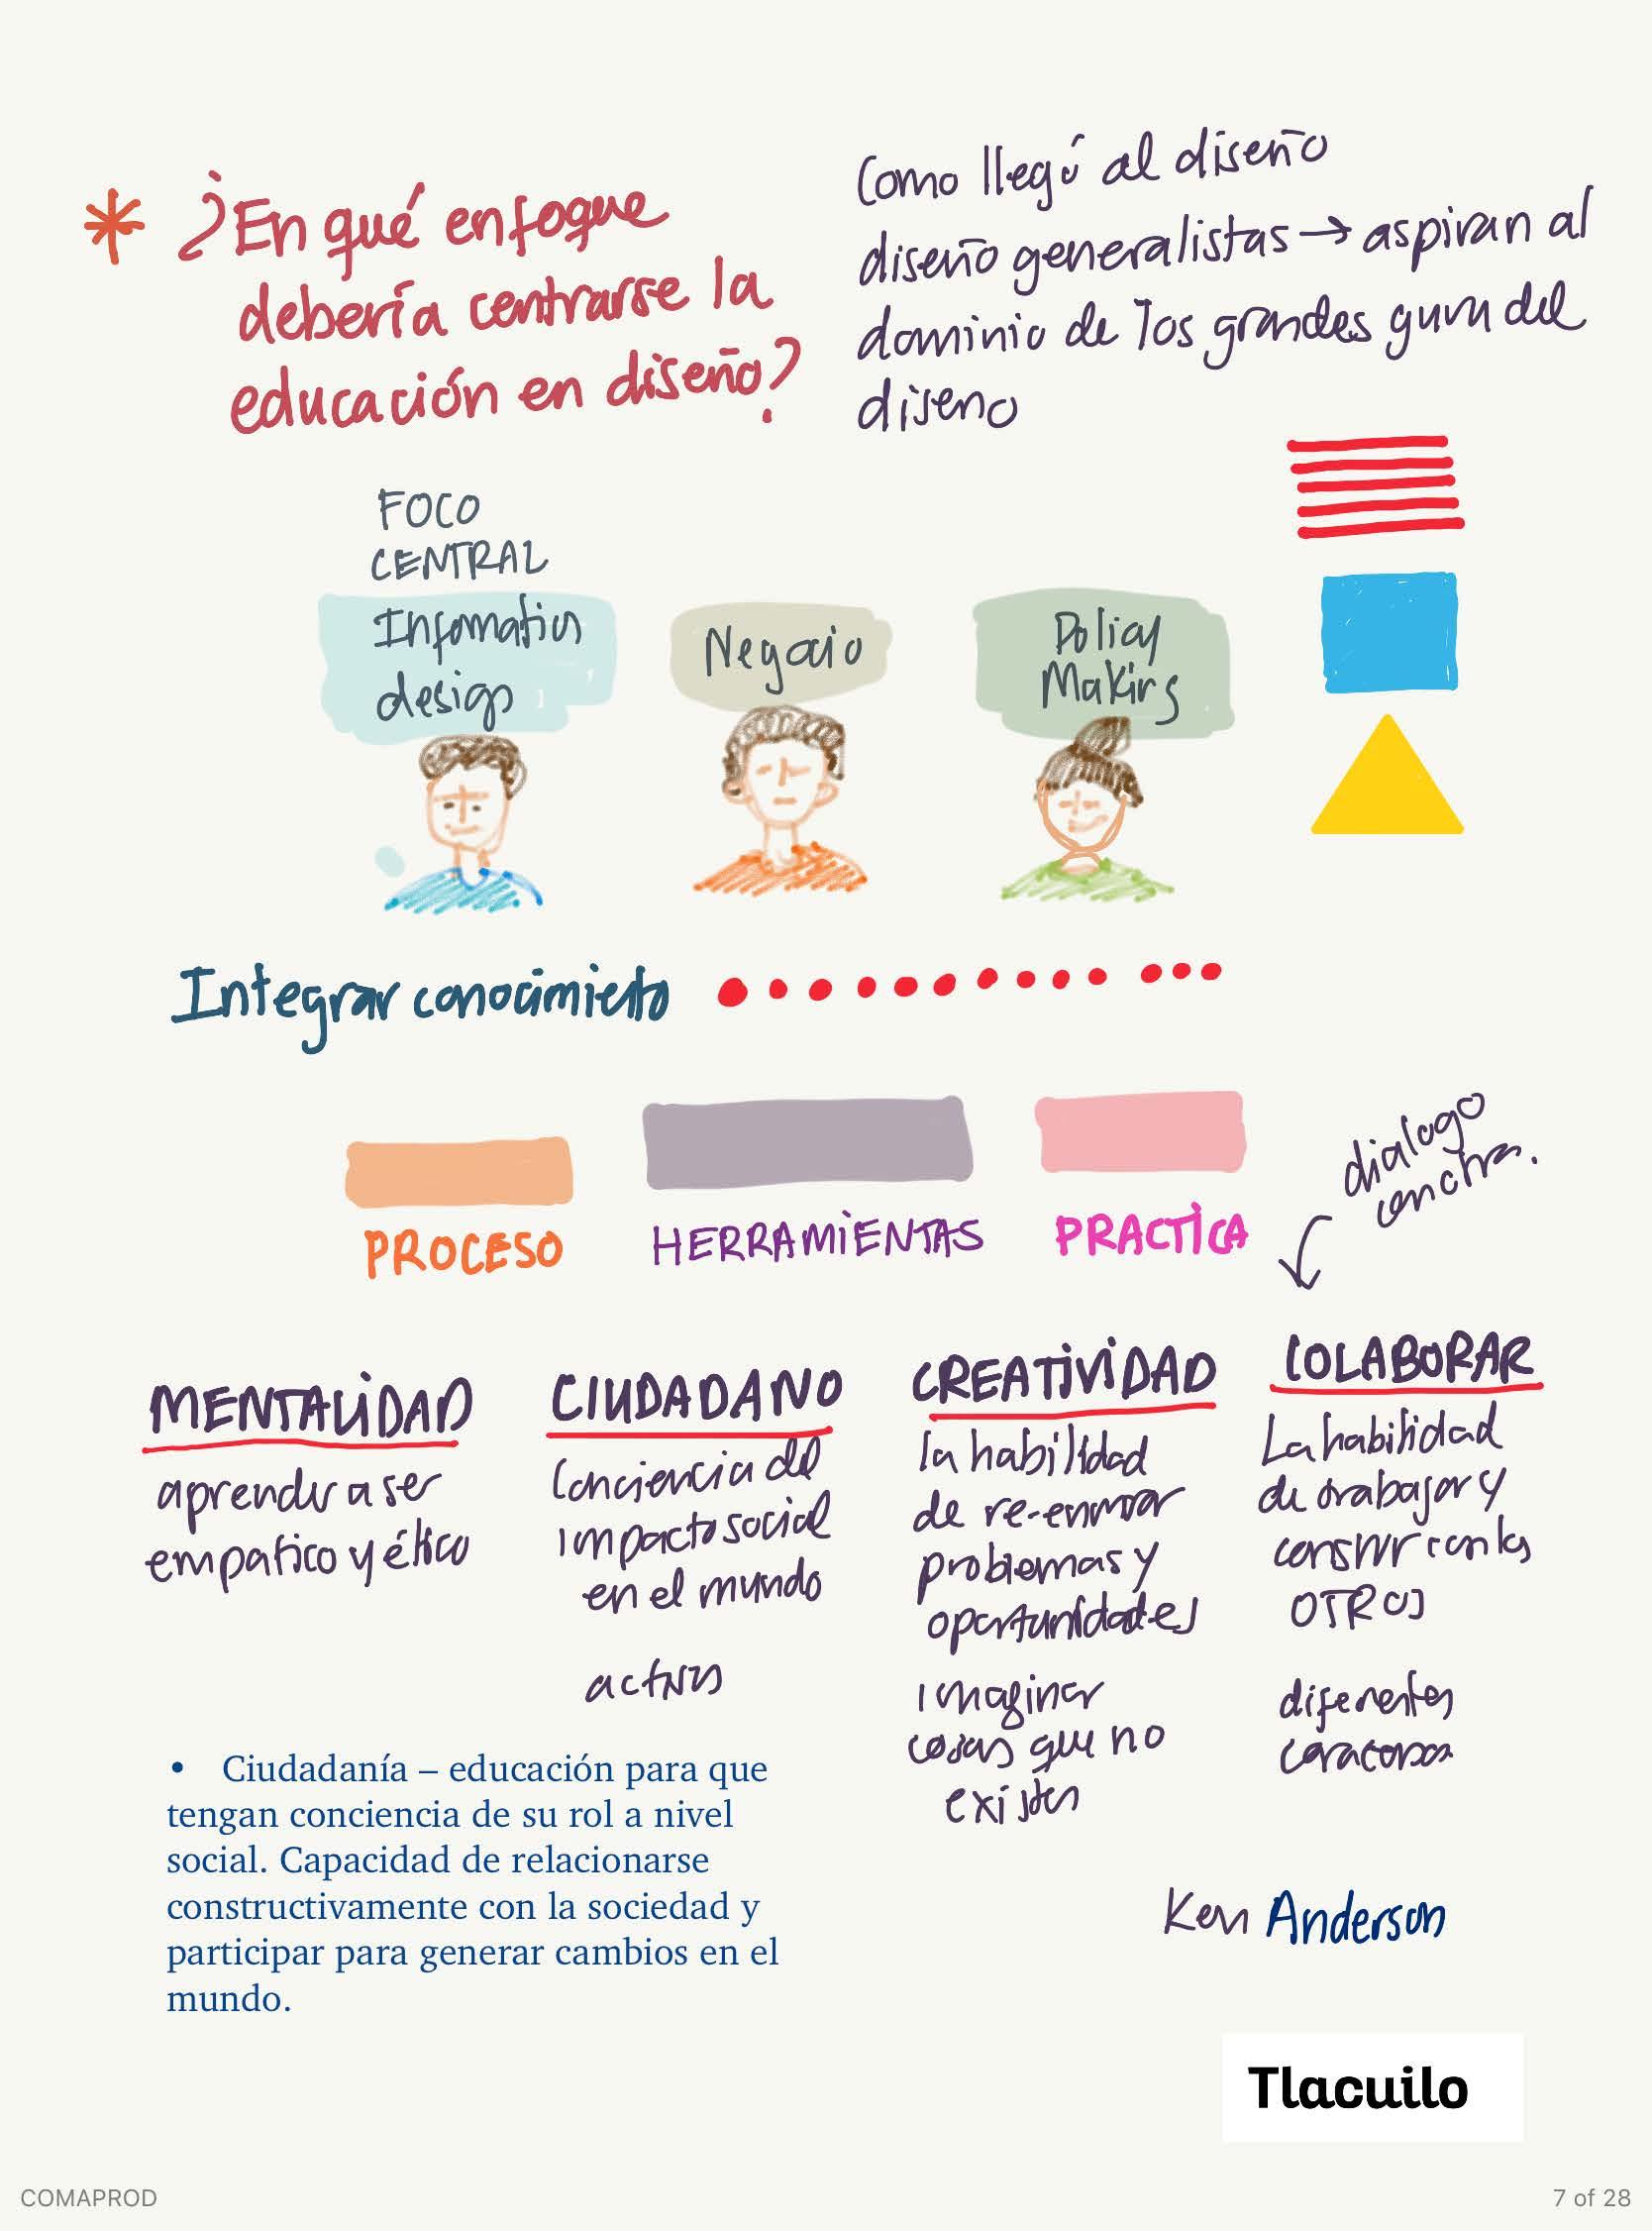 * ¿En qué enfoque
debería centrarse la
educación en diseño?
Como llegó al diseño
diseño generalistas → aspiran al
dominio de los grandes guru del
diseno
FOCO
CENTRAL
design
Negocio
Policy
Making
Integrar conocimiento
PROCESO
HERRAMIENTAS
PRACTICA
dialogo
MENTALIDAD
aprender a ser
empatico y ético
CIUDADANO
Conciencia del
impacto social
en el mundo
CREATIVIDAD
la habilidad
de re-enmarcar
problemas y
oportunidades
imaginar
cosas que no
existen
COLABORAR
La habilidad
de trabajar y
construir con los
OTROS
diferentes
• Ciudadanía – educación para que
tengan conciencia de su rol a nivel
social. Capacidad de relacionarse
constructivamente con la sociedad y
participar para generar cambios en el
mundo.
Ken Anderson
Tlacuilo
COMAPROD
7 of 28